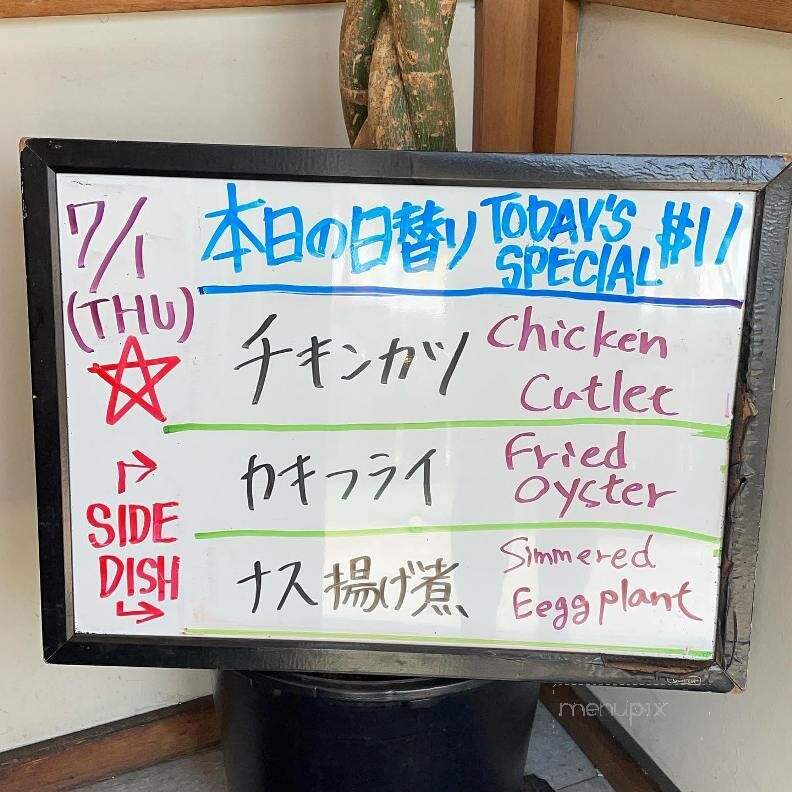 7/1
(THU)
本日の日替り TODAY'S SPECIAL $11
チキンカツ Chicken Cutlet
SIDE DISH
カキフライ Fried Oyster
ナス揚げ煮 Simmered Eeggplant
menupix